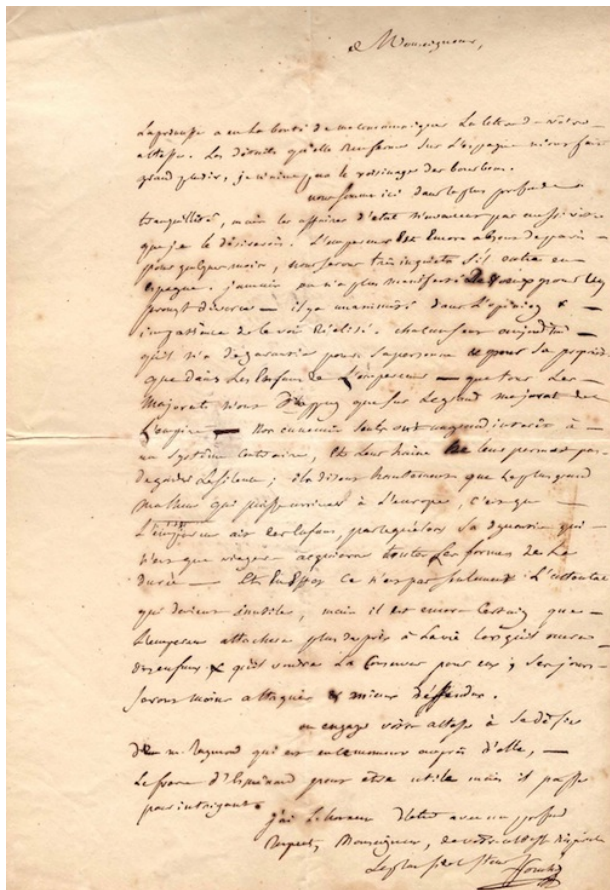 Monseigneur,
La princesse a eu la bonté de me communiquer la lettre de votre
altesse. Les détails qu'elle renferme sur l'espagne m'ont fait
grand plaisir, je n'aime pas le voisinage des bourbons.
nous sommes ici dans la plus profonde
tranquillité, mais les affaires d'état n'avancent pas aussi vite
que je le désirerois. L'empereur Est Encore absent de paris
pour quelques mois, nous serons très inquiets s'il entre en
espagne. jamais on n'a plus manifesté De pour Un
prompt divorce — il y a unanimité dans L'opinion &
impatience de le voir Réalisé. chacun sent aujourd'hui —
qu'il n'a de garantie pour sa personne & pour sa propriété
que dans Les Enfans de L'empereur — que tous Les
Majorats que sur Le grand majorat de
L'empire — Nos ennemis seuls ont un grand interêt à —
un système contraire, Et Leur haine ne leur permet pas
de garder Le silence ; ils disent hautement que Le plus grand
malheur qui puisse arriver à L'europe, c'est que —
L'empereur ait des Enfans, parcequ'alors sa dynastie qui
n'est que viagère acquierra toutes Les formes de La
durée — Et En Effet ce n'est pas seulement L'attentat
qui devient inutile, mais il est encore Certain que —
L'empereur attachera plus de prix à La vie lorsqu'il aura
des enfans & qu'il voudra La Conserver pour eux ; Ses jours
seront moins attaqués & mieux déffendus.
on engage votre altesse à se défier
De m. qui est en ce moment auprès d'elle, —
Le frere d' peut être utile mais il passe
pour intrigant.
j'ai L'honneur D'etre avec un profond
Respect, Monseigneur, de votre altesse
Le plus serviteur
Fouché